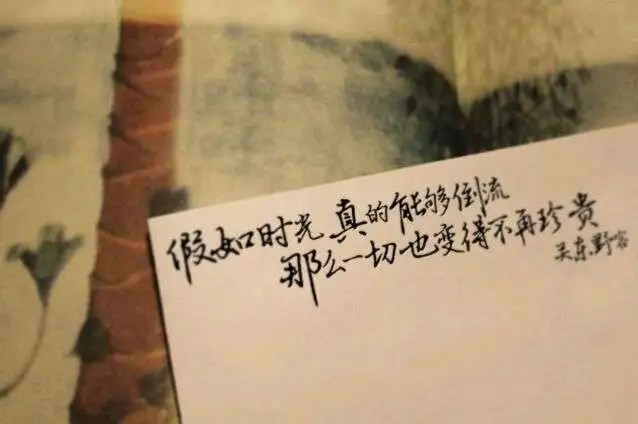 假如时光真的能够倒流
那么一切也变得不再珍贵
关东野客